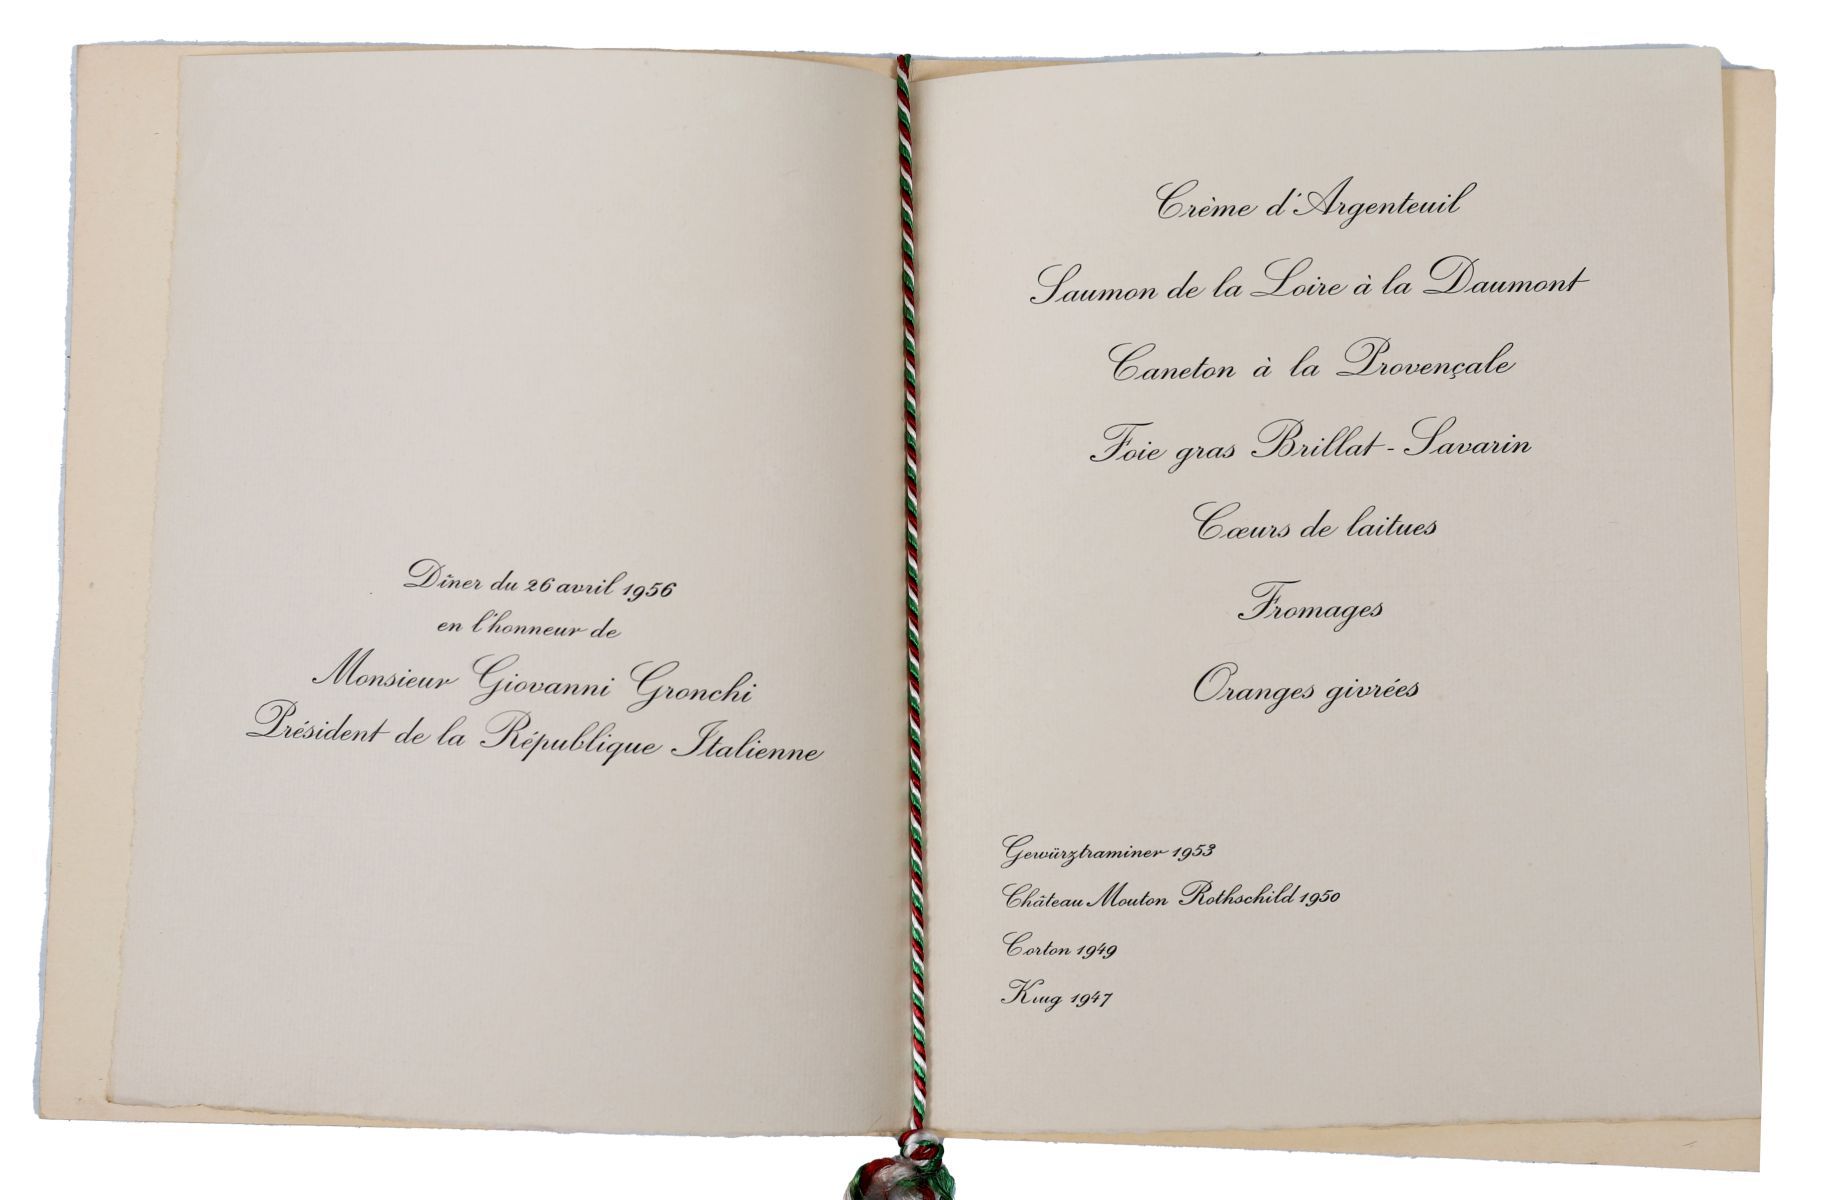 Dîner du 26 avril 1956
en l'honneur de
Monsieur Giovanni Gronchi
Président de la République Italienne
Crème d'Argenteuil
Saumon de la Loire à la Daumont
Caneton à la Provençale
Foie gras Brillat-Savarin
Cœurs de laitues
Fromages
Oranges givrées
Gewürztraminer 1953
Château Mouton Rothschild 1950
Corton 1949
Krug 1947